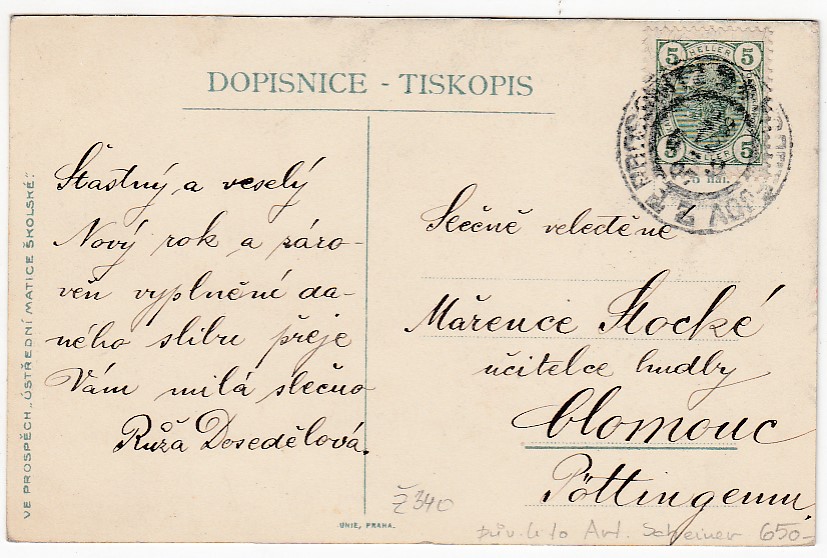 DOPISNICE - TISKOPIS
5 HELLER 5
5 HELLER 5
5 hal.
VE PROSPĚCH „ÚSTŘEDNÍ MATICE ŠKOLSKÉ“
Šťastný a veselý
Nový rok a záro-
veň vyplnění da-
ného slibu přeje
Vám milá slečno
Růža Dosedělová.
Slečně velectěné
Mařence Stocké
učitelce hudby
Olomouc
Pöttingeum.
Ž 340
UNIE, PRAHA.
Art. Scheiner 650-